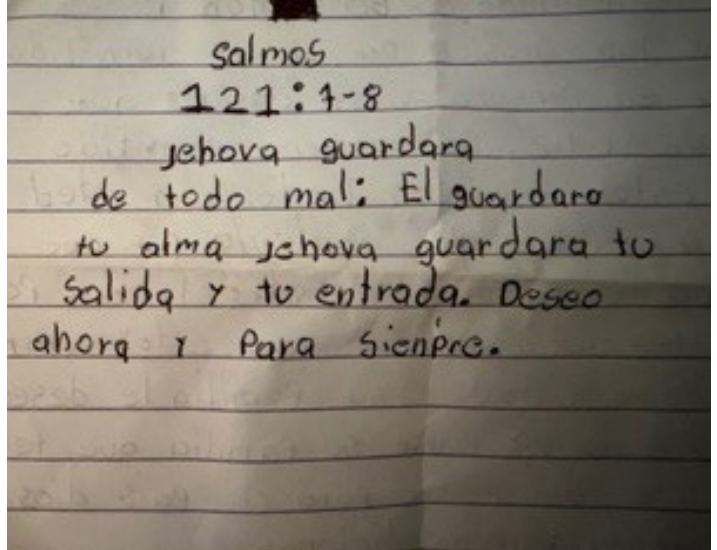 Salmos
121:7-8
jehova guardara
de todo mal: El guardara
tu alma jehova guardara tu
Salida y tu entrada. Deseo
ahora y Para Sienpre.